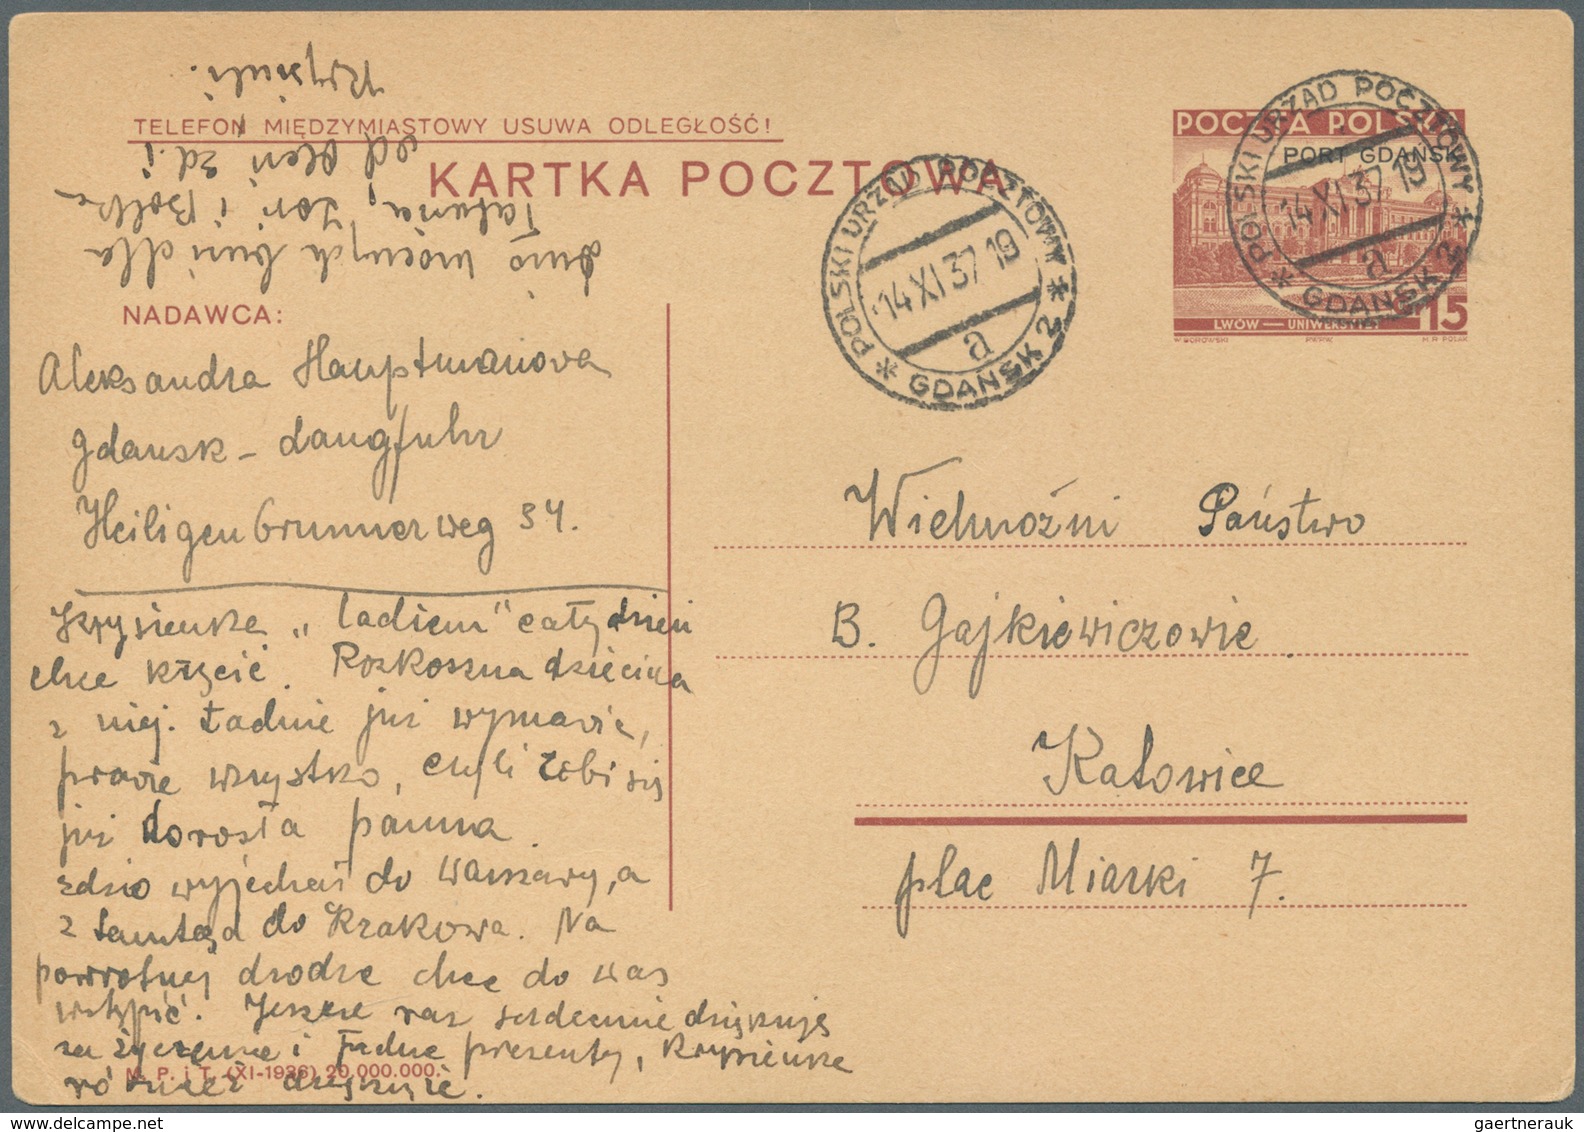 TELEFON MIĘDZYMIASTOWY USUWA ODLEGŁOŚĆ!
KARTKA POCZTOWA
POCZTA POLSKA
PORT GDAŃSK
LWÓW — UNIWERSYTET
15
W. BOROWSKI
M.R. POLAK
* POLSKI URZĄD POCZTOWY *
14 XI 37 19
a
GDAŃSK 2
* POLSKI URZĄD POCZTOWY *
14 XI 37 19
a
GDAŃSK 2
NADAWCA:
Aleksandra Hauptmanova
Gdańsk - Langfuhr
Heiligenbrunnerweg 34.
Krysieńka „ladiem" cały dzień
chce kręcić. Rozkoszna dziecina
z niej. Ładnie już wymawia,
prawie wszystko, czyli robi się
już dorosła panna
Zdzio wyjechał do Warszawy, a
z tamtąd do Krakowa. Na
powrotnej drodze chce do was
wstąpić. Jeszcze raz serdecznie dziękuję
za życzenia i ładne prezenty, Krysieńka
również dziękuje.
M. P. i T. (XI-1936) 20.000.000.
dużo mocnych buzi dla
Tatunia, Zosi i Bolka
od Oleń Zd. i
Krysiuli.
Wielmożni Państwo
B. Gajkiewiczowie.
Katowice
plac Miarki 7.
gaertnerauk